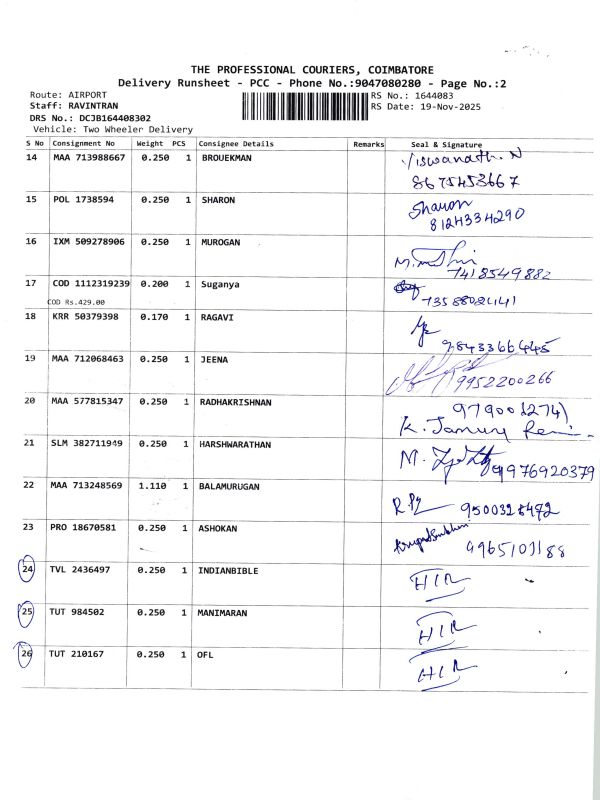 THE PROFESSIONAL COURIERS, COIMBATORE
Delivery Runsheet - PCC - Phone No.:9047080280 - Page No.:2
Route: AIRPORT
RS No.: 1644083
Staff: RAVINTRAN
RS Date: 19-Nov-2025
DRS No.: DCJB164408302
Vehicle: Two Wheeler Delivery
S No Consignment No Weight PCS Consignee Details Remarks Seal & Signature
14 MAA 713988667 0.250 1 BROUEKMAN Viswanath. N
8675453667
15 POL 1738594 0.250 1 SHARON Sharon
8124334290
16 IXM 509278906 0.250 1 MUROGAN
7418549882
17 COD 1112319239 0.200 1 Suganya
COD Rs.429.00
18 KRR 50379398 0.170 1 RAGAVI
9843366445
19 MAA 712068463 0.250 1 JEENA
9952200266
20 MAA 577815347 0.250 1 RADHAKRISHNAN
K.
21 SLM 382711949 0.250 1 HARSHWARATHAN M.
9976920379
22 MAA 713248569 1.110 1 BALAMURUGAN
9500328472
23 PRO 18670581 0.250 1 ASHOKAN
24 TVL 2436497 0.250 1 INDIANBIBLE HIR
25 TUT 984502 0.250 1 MANIMARAN HIR
26 TUT 210167 0.250 1 OFL HIR